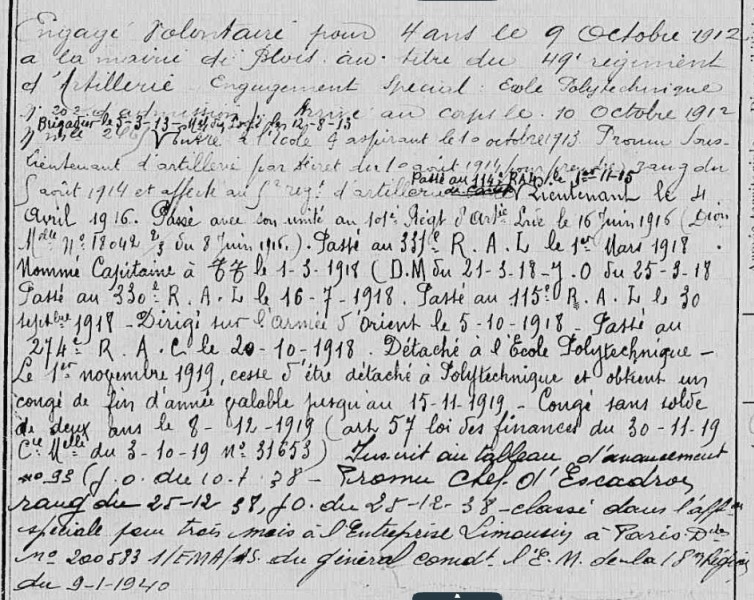 Engagé Volontaire pour 4 ans le 9 Octobre 1912
a la mairie de Blois au titre du 49e regiment
d'Artillerie Engagement Special : Ecole Polytechnique
Arrivé au corps le 10 Octobre 1912
Brigadier le 5-3-13 12-8-13
Entré à l'Ecole aspirant le 10 octobre 1913. Promu Sous-
lieutenant d'artillerie par Décret du 10 août 1914 pour prendre rang du
août 1914 et affecté au regt d'artillerie Passé au 114e R.A.L. le 1er 11-15 Lieutenant le 4
Avril 1916. Passé avec son unité au 101e Régt d'Artie Lde le 16 Juin 1916 (Dion
Mlle No 18042 2/3 du 8 Juin 1916.). Passé au 331e R.A.L le 1er Mars 1918.
Nommé Capitaine à le 1-3-1918 (D.M du 21-3-18-J.O du 25-3-18
Passé au 330e R.A.L le 16-7-1918. Passé au 115e R.A.L le 30
septbre 1918 - Dirigé sur l'Armée d'Orient le 5-10-1918 - Passé au
274e R.A.C le 20-10-1918. Détaché à l'Ecole Polytechnique -
Le 1er novembre 1919, cesse d'être détaché à Polytechnique et obtient un
congé de fin d'année valable jusqu'au 15-11-1919 - Congé sans solde
de deux ans le 8-12-1919 (art 57 loi des finances du 30-11-19
Cre Melle du 3-10-19 no 31653) Inscrit au tableau d'avancement
no 93 (J.O. du 10.7.38 - Promu Chef d'Escadron
rang du 25-12 38, JO. du 25-12-38 - classé dans l'affon
spéciale pour trois mois à l'Entreprise Limousin à Paris Don
no 200583 1/EMA/ du général comdt l'E.M. de la 18e Région
du 9-1-1940